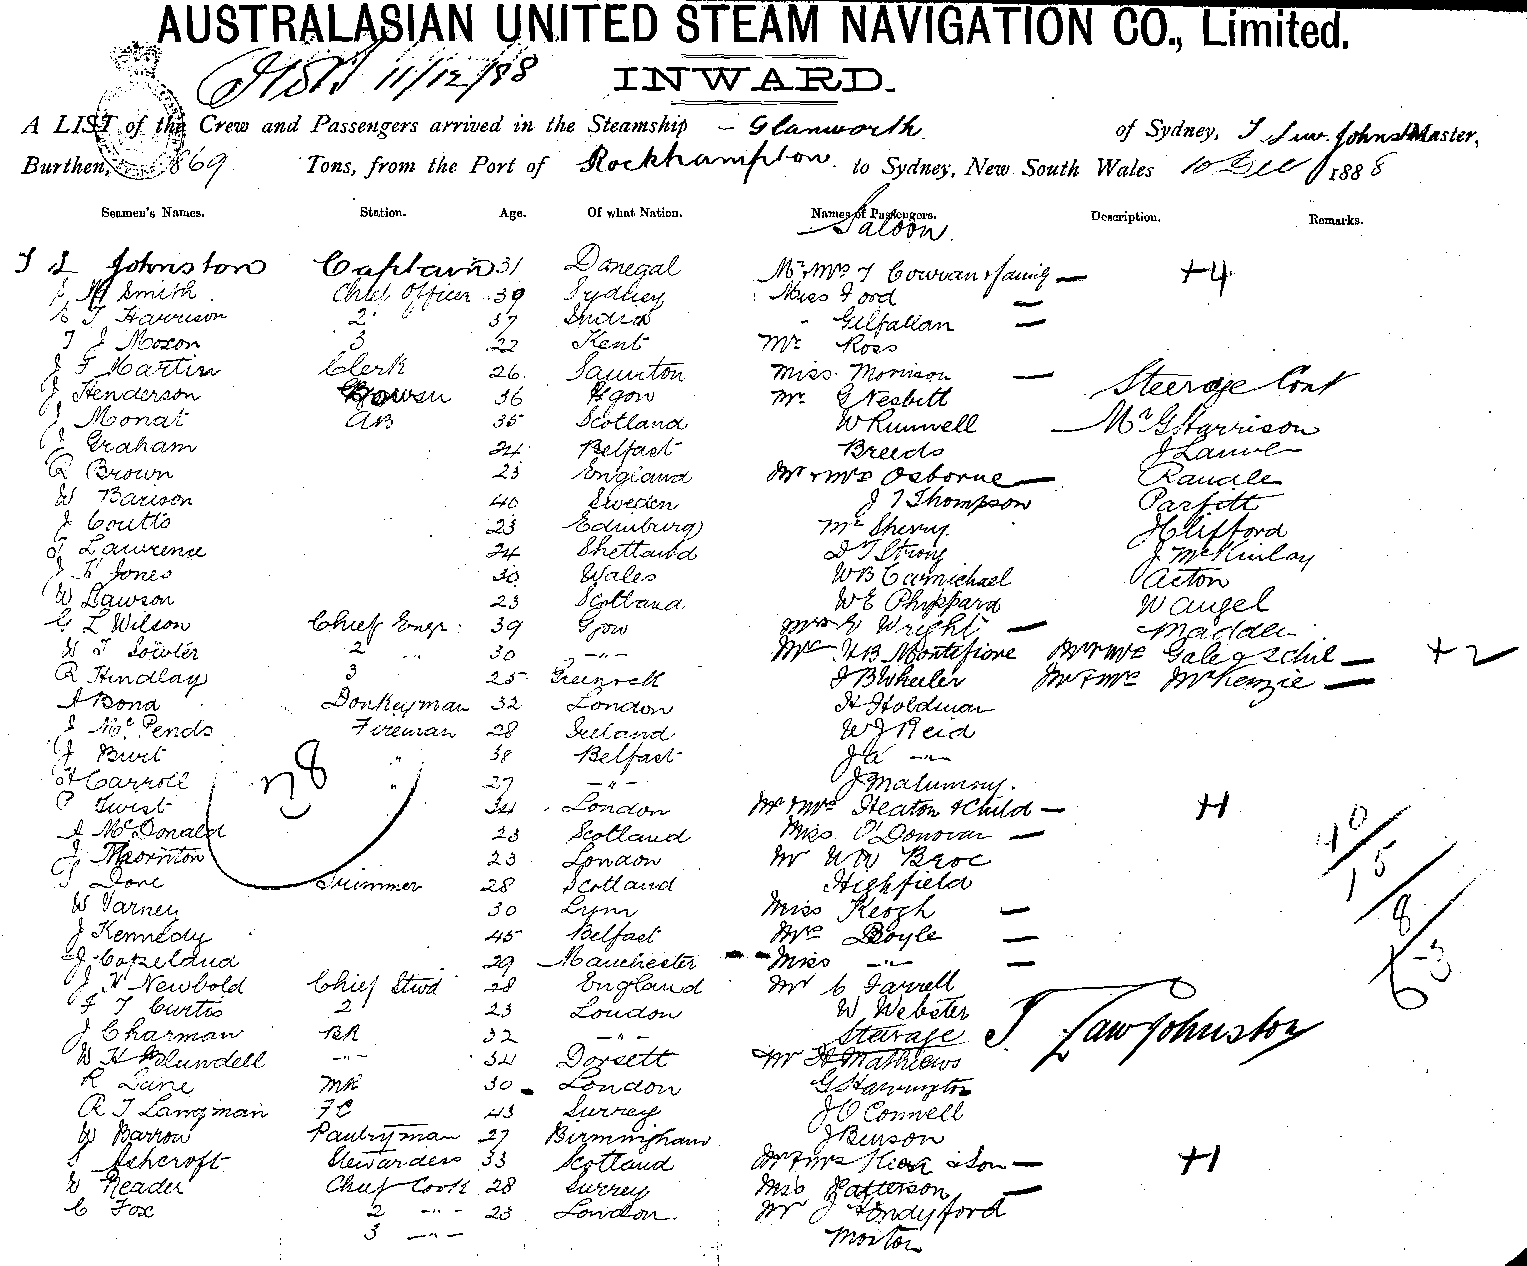 AUSTRALASIAN UNITED STEAM NAVIGATION CO., Limited.
11/12/88
INWARD.
A LIST of the Crew and Passengers arrived in the Steamship - Glanworth of Sydney, T Law Johns Master,
Burthen, 869 Tons, from the Port of Rockhampton to Sydney, New South Wales 10 Dec 1888
Seamen's Names. Station. Age. Of what Nation. Names of Passengers. Description. Remarks.
Saloon.
T L Johnston Captain 31 Donegal Mr & Mrs T Cowan & family — +4
Smith Chief Officer 39 Sydney Miss Ford —
T Harrison 2 37 India " Gilfallan —
T J Moxon 3 22 Kent Mr Ross
J F Martin Clerk 26 Taunton Miss Morrison —
J Henderson Bowsn 36 Mr G Nesbitt Steerage Cont
J Monat AB 35 Scotland W Runwell Mr G Harrison
J Graham 24 Belfast Breeds J
R Brown 23 England Mr & Mrs Osborne — Randle
W Barison 40 Sweden J T Thompson Parfitt
J Coutts 23 Edinburg Mr Sherry Clifford
T Lawrence 24 Shetland D T Strong J McKinlay
J H Jones 30 Wales W B Carmichael Acton
W Lawson 23 Scotland W E Phippard W Angel
L Wilson Chief Engr. 39 Gow Mrs E Wright — Madden
W T 2 " 30 -"- Mr H B Montefiore Mr & Mrs Gale & 2 Chil — +2
R Hindlay 3 25 Greenock J B Wheeler Mr & Mrs McKenzie —
A Bond Donkeyman 32 London H Holdman
J McPends Fireman 28 Ireland W J Reid
J Burt " 38 Belfast J A -"-
H Carroll " 27 -"- J Malumny.
P Twist 34 London Mr & Mrs Heaton & Child — +1
A McDonald 23 Scotland Miss O'Donovan —
J Thornton 23 London Mr Broc
T Dore Trimmer 28 Scotland Highfield
W Varney 30 Lynn Miss Keogh —
J Kennedy 45 Belfast Mrs Boyle —
J Copeland 29 Manchester Miss -"- —
J H Newbold Chief Stwd 28 England Mr C Farrell
F T Curtis 2 23 London W Webster
J Charman BR 32 -"- Steerage T. Law Johnston
W H Blundell -"- 34 Dorsett Mr H Mathews
R Lane MR 30 London G Harrington
R T Langman FC 43 Surrey J O Connell
W Barrow Pantryman 27 Birmingham J Benson
S Ashcroft Stewardess 33 Scotland Mr & Mrs & Son — +1
W Reader Chief Cook 28 Surrey Miss Patterson —
C Fox 2 -"- 23 London Mr J Handyford
3 -"- Morton
n8
40/15/8/63